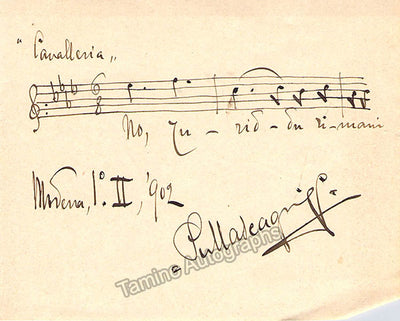 "Cavalleria"
6
8
No, Tu - rid - du rimani
Modena, 1º. II, '902
PMascagni
Tamino Autographs